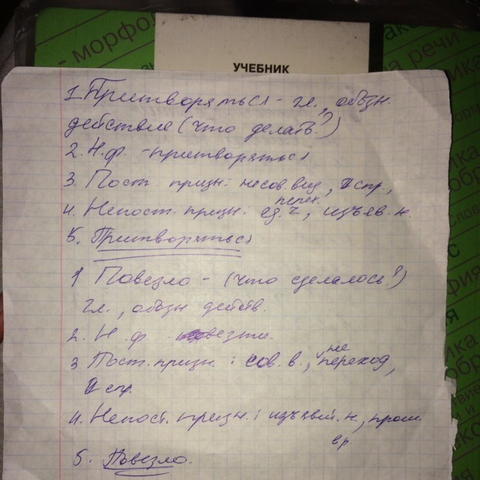 - морфол
УЧЕБНИК
1. Притворяться - гл., обозн.
действие (что делать?)
2. Н.ф. - притворяться
3. Пост. призн.: несов вид, I спр.,
перех.
4. Непост. призн: ед. ч, изъяв. н.
5. Притворяться
1 Повезло - (что сделалось?)
гл., обозн действ.
2. Н. ф везти.
3 Пост. призн.: сов. в., не переход,
I спр.
4. Непост. призн.: изъявит. н, прош
вр.
5. Повезло.